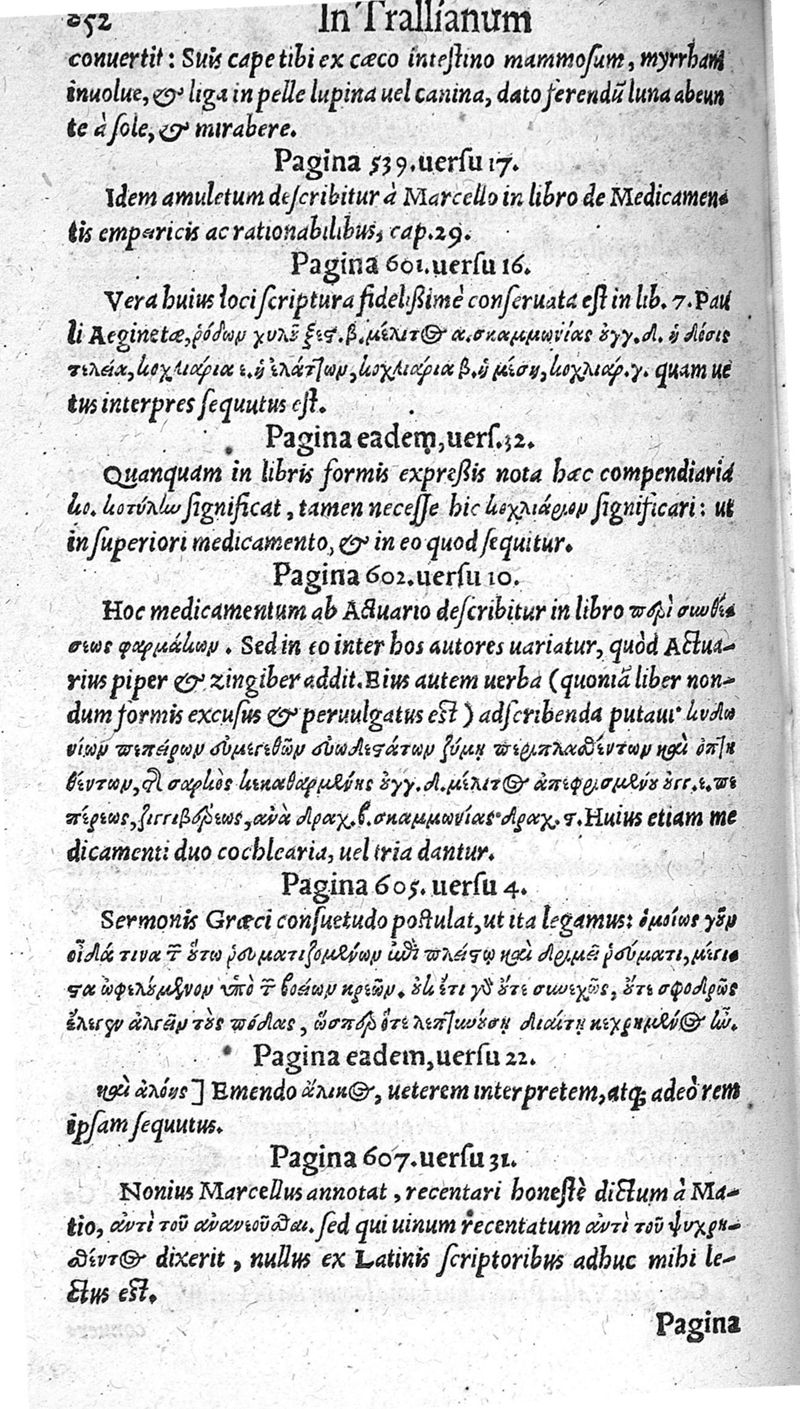 852 In Trallianum
conuertit: Suis cape tibi ex cæco inteſtino mammoſum, myrrham
inuolue, & liga in pelle lupina uel canina, dato ferendũ luna abeun
te à ſole, & mirabere.
Pagina 539. uerſu 17.
Idem amuletum deſcribitur à Marcello in libro de Medicamen-
tis empiricis ac rationabilibus, cap. 29.
Pagina 601. uerſu 16.
Vera huius loci ſcriptura fideliſſimè conſeruata eſt in lib. 7. Pau
li Aeginetæ, ῥόδων χυλοῦ ξες. β. μέλιτος α. σκαμμωνίας ουγγ. δ. ἡ δόσις
τελεία, κοχλιάρια ε. ἡ ἐλάττων, κοχλιάρια β. ἡ μέση, κοχλιάρ. γ. quam ue
tus interpres ſequutus eſt.
Pagina eadem, uerſ. 32.
Quanquam in libris formis expreſſis nota hæc compendiaria
κο. κοτύλην ſignificat, tamen neceſſe hic κοχλιάριον ſignificari: ut
in ſuperiori medicamento, & in eo quod ſequitur.
Pagina 602. uerſu 10.
Hoc medicamentum ab Actuario deſcribitur in libro περὶ συνθέ-
σεως φαρμάκων. Sed in eo inter hos autores uariatur, quòd Actua-
rius piper & zingiber addit. Eius autem uerba (quoniã liber non-
dum formis excuſus & peruulgatus eſt) adſcribenda putaui· κυδω
νίων πεπείρων εὐμεγεθῶν εὐωδεστάτων ζύμῃ περιπλασθέντων καὶ ὀπτη
θέντων, τῆς σαρκὸς κεκαθαρμένης ουγγ. δ. μέλιτος ἀπεφρισμένου ουγγ. ε. πε
πέρεως, ζιγγιβέρεως, ἀνὰ δραχ. β. σκαμμωνίας δραχ. ς. Huius etiam me
dicamenti duo cochlearia, uel tria dantur.
Pagina 605. uerſu 4.
Sermonis Græci conſuetudo poſtulat, ut ita legamus: ὁμοίως γοῦν
οἶδά τινα τῶν οὕτω ῥευματιζομένων ἐπὶ πλείστῳ καὶ δριμεῖ ῥεύματι, μέγισ-
τα ὠφελούμενον ὑπὸ τῶν βοείων κρεῶν. οὐκ ἔτι γὰρ οὔτε συνεχῶς, οὔτε σφοδρῶς
ἔλεγεν ἀλγεῖν τοὺς πόδας, ὥσπερ ὅτε λεπτυνούσῃ διαίτῃ κεχρημένος ἦν.
Pagina eadem, uerſu 22.
καὶ ἀλόης] Emendo ἅλικος, ueterem interpretem, atq; adeò rem
ipſam ſequutus.
Pagina 607. uerſu 31.
Nonius Marcellus annotat, recentari honeſtè dictum à Ma-
tio, ἀντὶ τοῦ ἀνανεοῦσθαι. ſed qui uinum recentatum ἀντὶ τοῦ ψυχρη-
θέντος dixerit, nullus ex Latinis ſcriptoribus adhuc mihi le-
ctus eſt.
Pagina